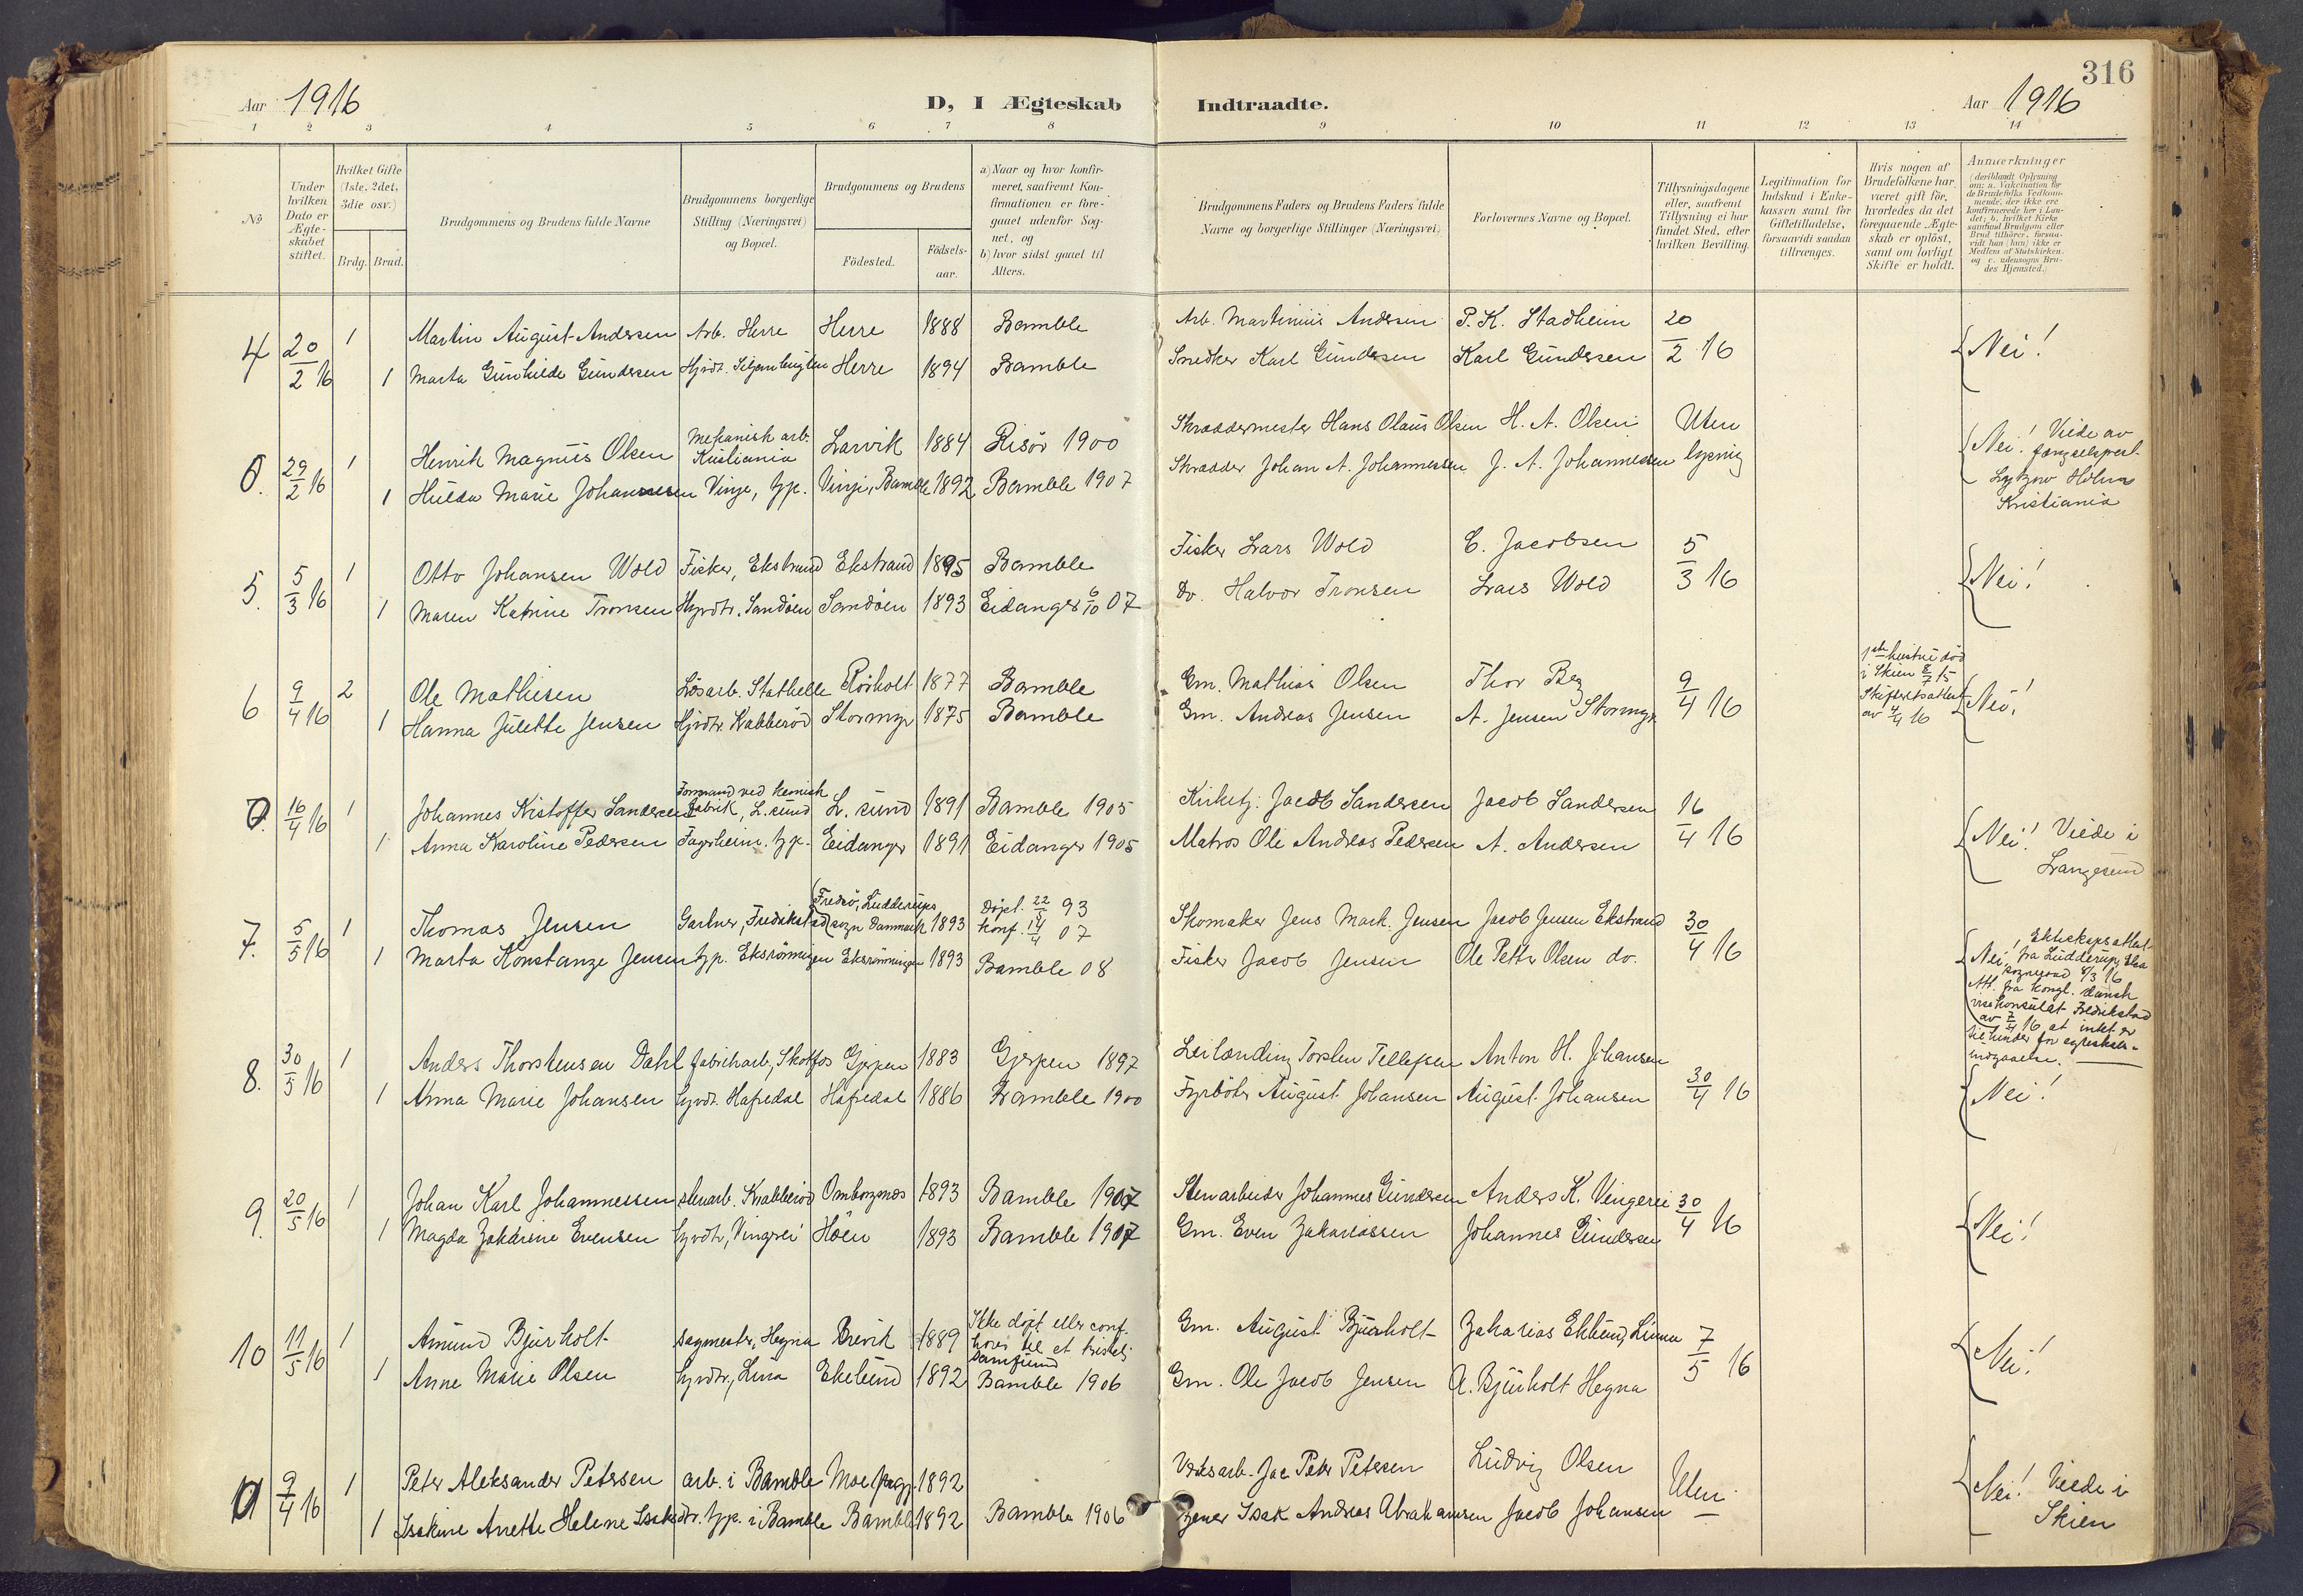 316
Aar 1916
D, I Ægteskab
Indtraadte.
Aar 1916
1 2 3 4 5 6 7 8 9 10 11 12 13 14
No
Under hvilken Dato er Ægteskabet stiftet.
Hvilket Gifte (1ste, 2det, 3die osv.)
Brdg. Brud.
Brudgommens og Brudens fulde Navne
Brudgommens borgerlige Stilling (Næringsvei) og Bopæl.
Brudgommens og Brudens
Födested.
Födsels-aar.
a) Naar og hvor konfir-meret, saafremt Kon-firmationen er fore-gaaet udenfor Sog-net, og
b) hvor sidst gaaet til Alters.
Brudgommens Faders og Brudens Faders fulde Navne og borgerlige Stillinger (Næringsvei)
Forlovernes Navne og Bopæl.
Tillysningsdagene eller, saafremt Tillysning ei har fundet Sted, efter hvilken Bevilling.
Legitimation for Indskud i Enke-kassen samt for Giftetilladelse, forsaavidt saadan tiltrænges.
Hvis nogen af Brudefolkene har været gift för, hvorledes da det foregaaende Ægte-skab er oplöst, samt om lovligt Skifte er holdt.
Anmærkninger (deriblandt Oplysning om: a. Vakcination for de Brudefolks Vedkom-mende, der ikke ere konfirmerede her i Lan-det; b. hvilket Kirke samfund Brudgom eller Brud tilhører, forsaa-vidt han (hun) ikke er Medlem af Statskirken. og c. udensogns Bru-des Hjemsted.)
4 20/2 16 1 Martin August Andersen Arb. Herre Herre 1888 Bamble Arb. Martinius Andersen P. K. Stadheim 20/2 16 Nei!
1 Marta Gunhilde Gundersen Hjvdt. Herre 1894 Bamble Snedker Karl Gundersen Karl Gundersen
0. 29/2 16 1 Henrik Magnus Olsen Mekanisk arb. Kristiania Larvik 1884 Risör 1900 Skræddermester Hans Olaus Olsen H. A. Olsen Uten lysning Nei! Viede av
1 Hulda Marie Johannesen Vinje, hjp. Vinje, Bamble 1892 Bamble 1907 Skrædder Johan A. Johannessen J. A. Johannessen
Lytzow Holm Kristiania
5. 5/3 16 1 Otto Johansen Wold Fisker, Ekstrand Ekstrand 1895 Bamble Fisker Lars Wold C. Jacobsen 5/3 16 Nei!
1 Maren Katrine Tronsen Hjvdtr. Sandöen Sandöen 1893 Eidanger 6/10 07 Do. Halvor Tronsen Lars Wold
6 9/4 16 2 Ole Mathisen Lösarb. Stathelle Rörholt 1877 Bamble Gm. Mathias Olsen Thor Berg 9/4 16 1ste hustru död i Skien 8/7 15 Skifteretsattest av 4/4 16 Nei!
1 Hanna Julette Jensen Hjvdtr. Krabberöd Stormyr 1875 Bamble Gm. Andreas Jensen A. Jensen Stormyr
0. 16/4 16 1 Johannes Kristoffer Sandersen Formand ved kemisk fabrik, L.sund L.sund 1891 Bamble 1905 Kirketj. Jacob Sandersen Jacob Sandersen 16/4 16 Nei! Viede i Langesund
1 Anna Karoline Pedersen Fagerheim. hjp. Eidanger 1891 Eidanger 1905 Matros Ole Andreas Pedersen A. Andersen
7. 5/5 16 1 Thomas Jensen Gartner, Fredikstad Fredsö, Ludderups sogn Danmark 1893 Döpt. 22/5 93 konf. 14/4 07 Skomaker Jens Mark. Jensen Jacob Jensen Ekstrand 30/4 16
1 Marta Konstanze Jensen hjp. Eksrönningen Eksrönningen 1893 Bamble 08 Fisker Jacob Jensen Ole Petter Olsen do.
Nei! fra Ludderup, sogneraad 8/3 16
Att. fra Kongl. dansk visekonsulat Fredrikstad av 7/4 16 at intet er til hinder for egteskaps-indgaaelse.
8. 30/5 16 1 Anders Thorstensen Dahl fabrikarb, Skotfos Gjerpen 1883 Gjerpen 1897 Leilænding Torsten Tellefsen Anton H. Johansen 30/4 16 Nei!
1 Anna Marie Johansen hjvdt. Hafsedal Hafsedal 1886 Bamble 1900 Fyrböter August Johansen August Johansen
9. 20/5 16 1 Johan Karl Johannessen stenarb. Krabberöd Omborgsnes 1893 Bamble 1907 Stenarbeider Johannes Gundersen Anders K. Vingerei 30/4 16 Nei!
1 Magda Zakarine Evensen hjvdtr, Vingrei Höen 1893 Bamble 1907 Gm. Even Zakariassen Johannes Gundersen
10 11/5 16 1 Amund Bjurholt sagmester, Hegna Brevik 1889 Ikke döpt eller conf. hörer til et kristelig samfund Gm. August Bjurholt Zakarias Eklund, Linna 7/5 16 Nei!
1 Anne Marie Olsen hjvdtr, Lina Ekelund 1892 Bamble 1906 Gm. Ole Jacob Jensen A. Bjurholt Hegna
0 9/4 16 1 Peter Aleksander Petersen arb. i Bamble Moe 1892 Jac Peter Petersen Ludvig Olsen Uten Nei! Viede i Skien
1 Isakine Anette Helene Isaksdtr. hjp. i Bamble Bamble 1892 Bamble 1906 Isak Andreas Abrahamsen Jacob Johansen